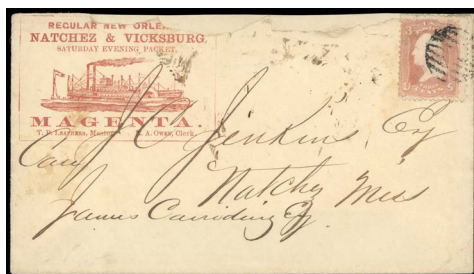 REGULAR NEW ORLE
NATCHEZ & VICKSBURG.
SATURDAY EVENING PACKET.
MAGENTA.
T. P. LEATHERS, Master. A. OWEN, Clerk.
Jenkins Esq
Care
Natchez Miss
James Carradine Esq